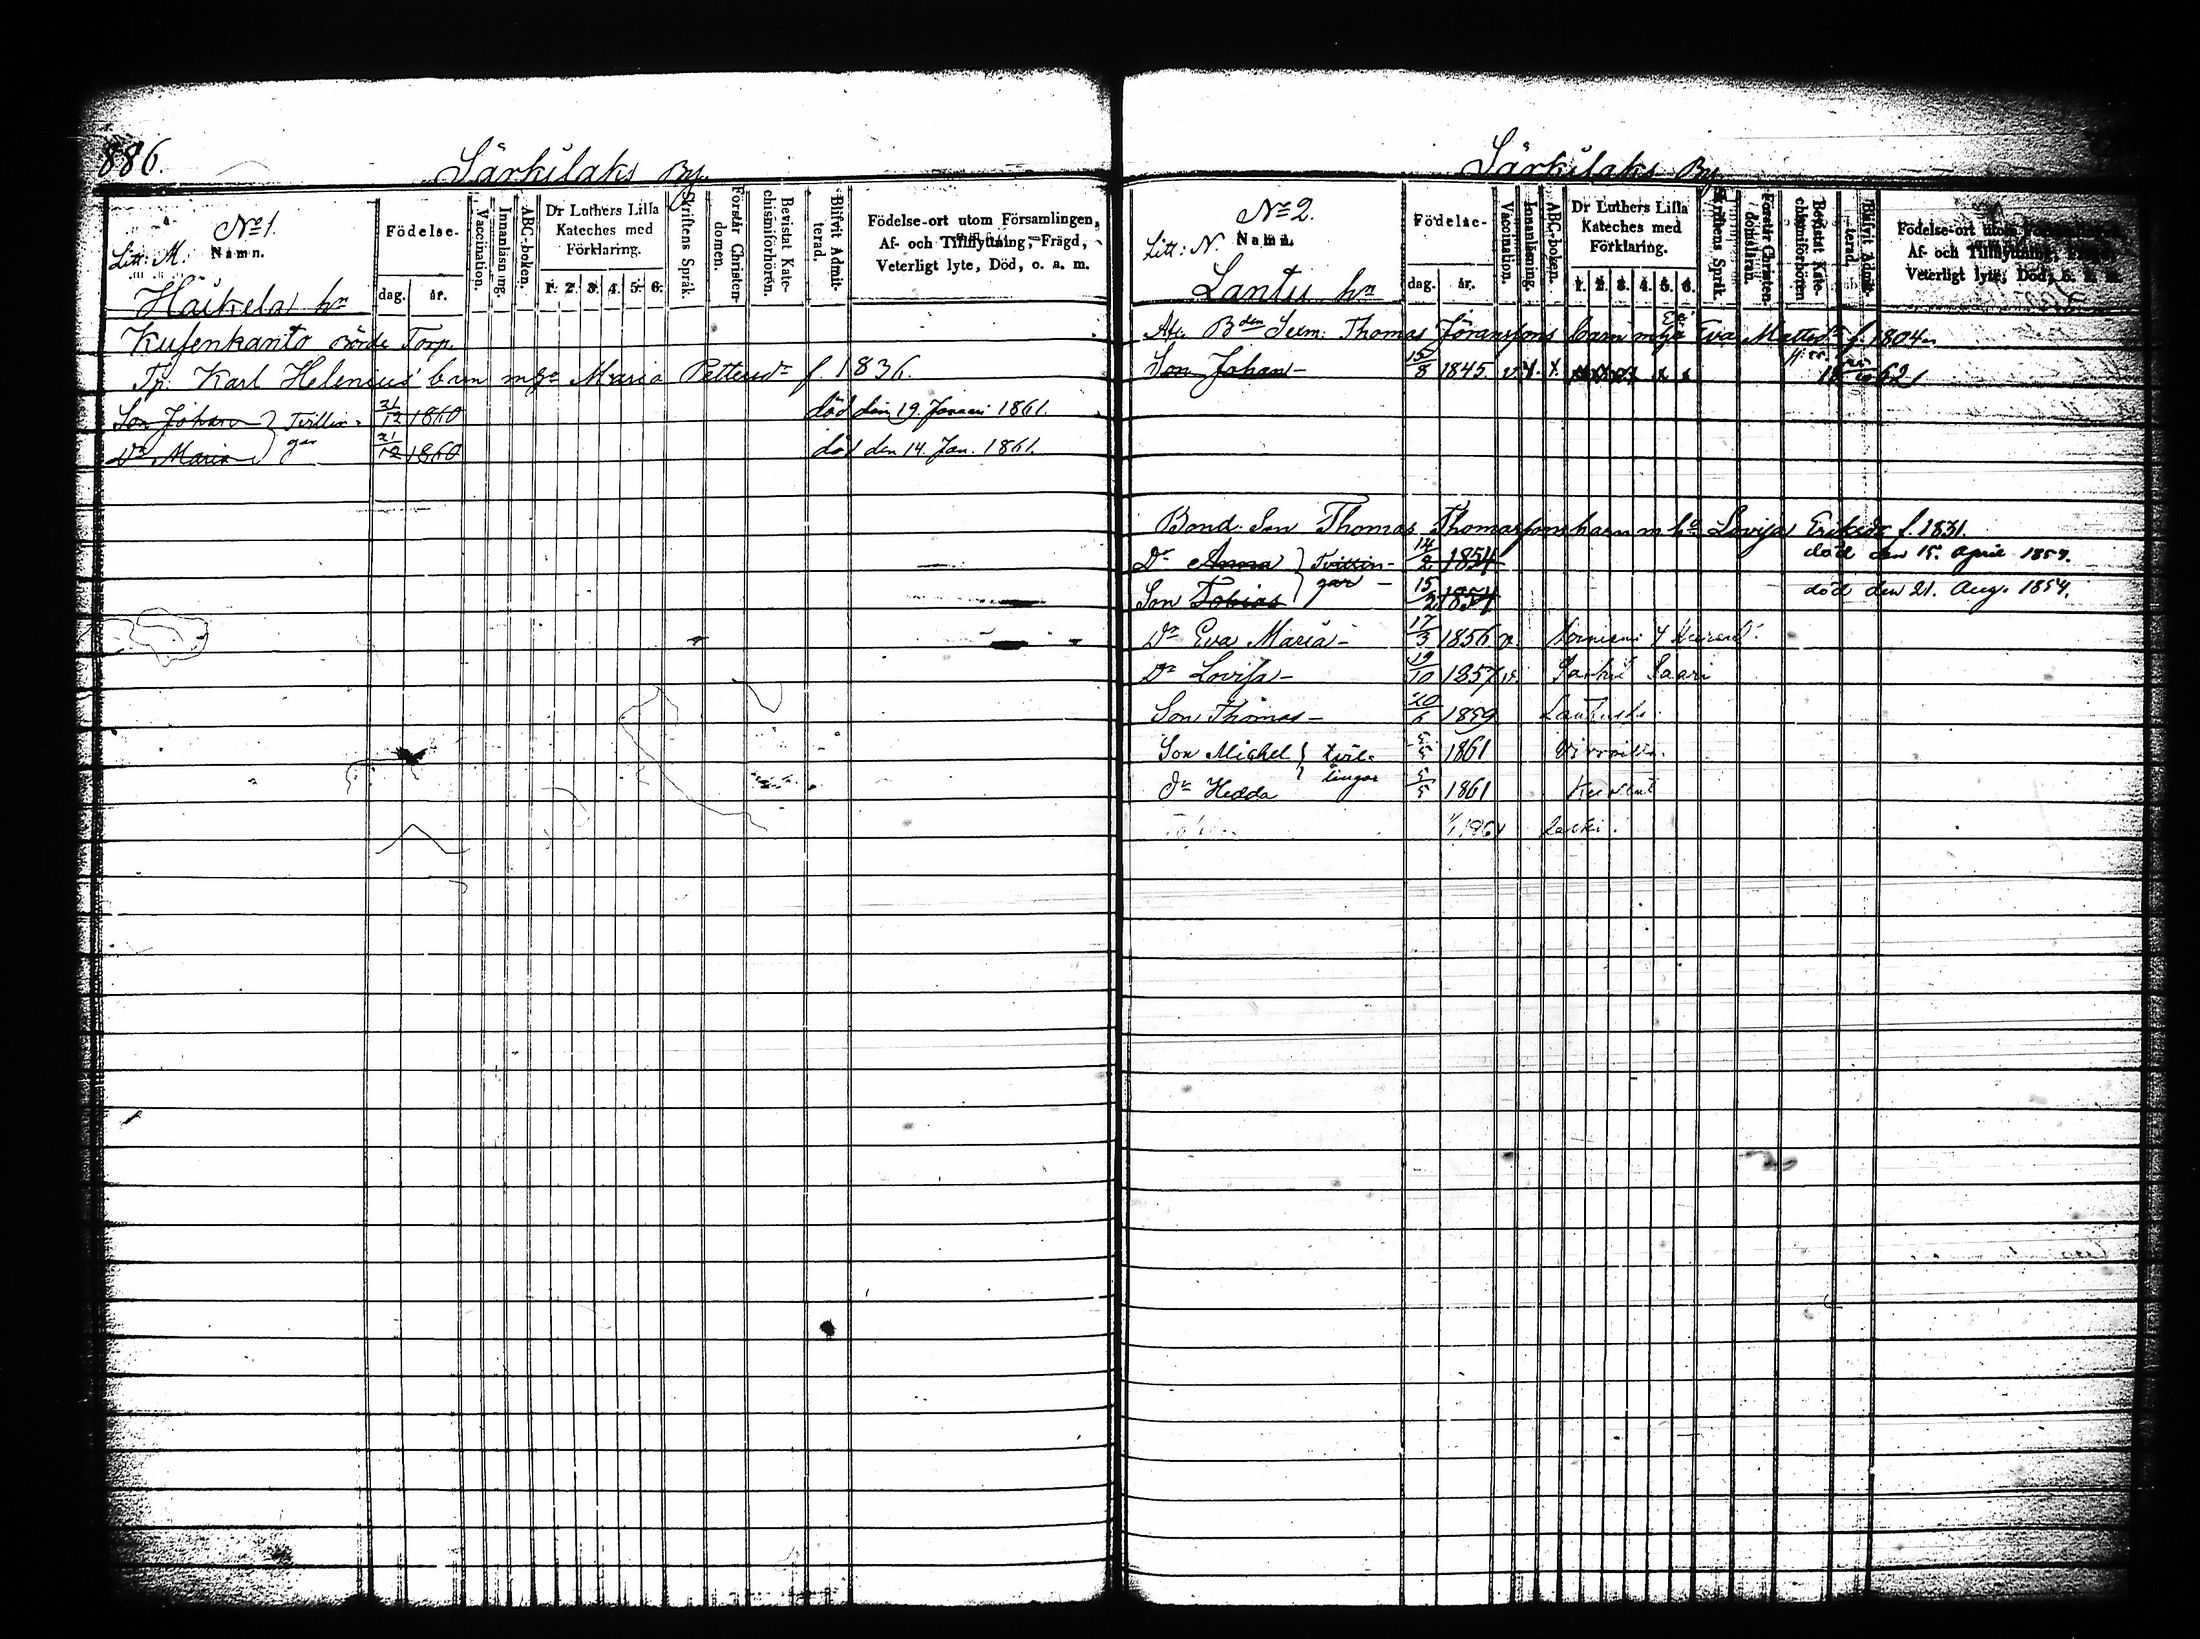 886.
Särkilaks By.
Litt: M.
No 1.
Namn.
Födelse-
dag.
år.
Vaccination.
Innanläsning.
ABC-boken.
Dr Luthers Lilla Kateches med Förklaring.
1. 2. 3. 4. 5. 6.
Skriftens Språk.
Förstår Christen-domen.
Bevistat Kate-chismiförhören.
Blifvit Admit-terad.
Födelse-ort utom Församlingen,
Af- och Tillflyttning, Frägd,
Veterligt lyte, Död, o. a. m.
Häikelä hn
Torp.
Tp. Karl Helenius' barn Maria Pettersdr f. 1836.
Son Johan Tvillin- 21/12 1860 död den 19 Januari 1861.
Dr Maria gar 21/12 1860 död den 14. Jan. 1861.
Särkilaks By
Litt: N.
No 2.
Namn.
Födelse-
dag.
år.
Vaccination.
Innanläsning.
ABC-boken.
Dr Luthers Lilla Kateches med Förklaring.
1. 2. 3. 4. 5. 6.
Skriftens Språk.
Förstår Christen-domsläran.
Bevistat Kate-chismiförhören
Blifvit Admit-terad.
Födelse-ort utom Församlingen,
Af- och Tillflyttning, Frägd,
Veterligt lyte, Död, o. a. m.
Lantu hn
Bden Thomas Göranssons barn Eva Mattsdr f. 1804
Son Johan - 15/8 1845. v 62
Bond. Son Thomas Thomassons barn m ho Lovisa Eriksdr f. 1831.
Dr Anna Tvillin- 14/2 1854 död den 15. April 1857.
Son Tobias gar - 15/2 1854 död den 21. Aug. 1854.
Dr Eva Maria - 17/3 1856 v.
Dr Lovisa - 19/10 1857 v. Saari
Son Thomas - 20/6 1859
Son Michel tvil- 5/5 1861
Dr Hedda lingar 5/5 1861